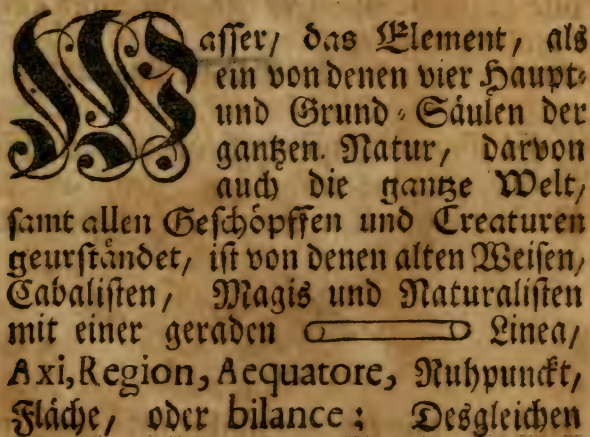 Wasser/ das Element, als
ein von denen vier Haupt-
und Grund-Säulen der
gantzen Natur, darvon
auch die gantze Welt,
samt allen Geschöpffen und Creaturen
geurständet, ist von denen alten Weisen,
Cabalisten, Magis und Naturalisten
mit einer geraden Linea,
Axi, Region, Aequatore, Ruhpunckt,
Fläche, oder bilance; Desgleichen